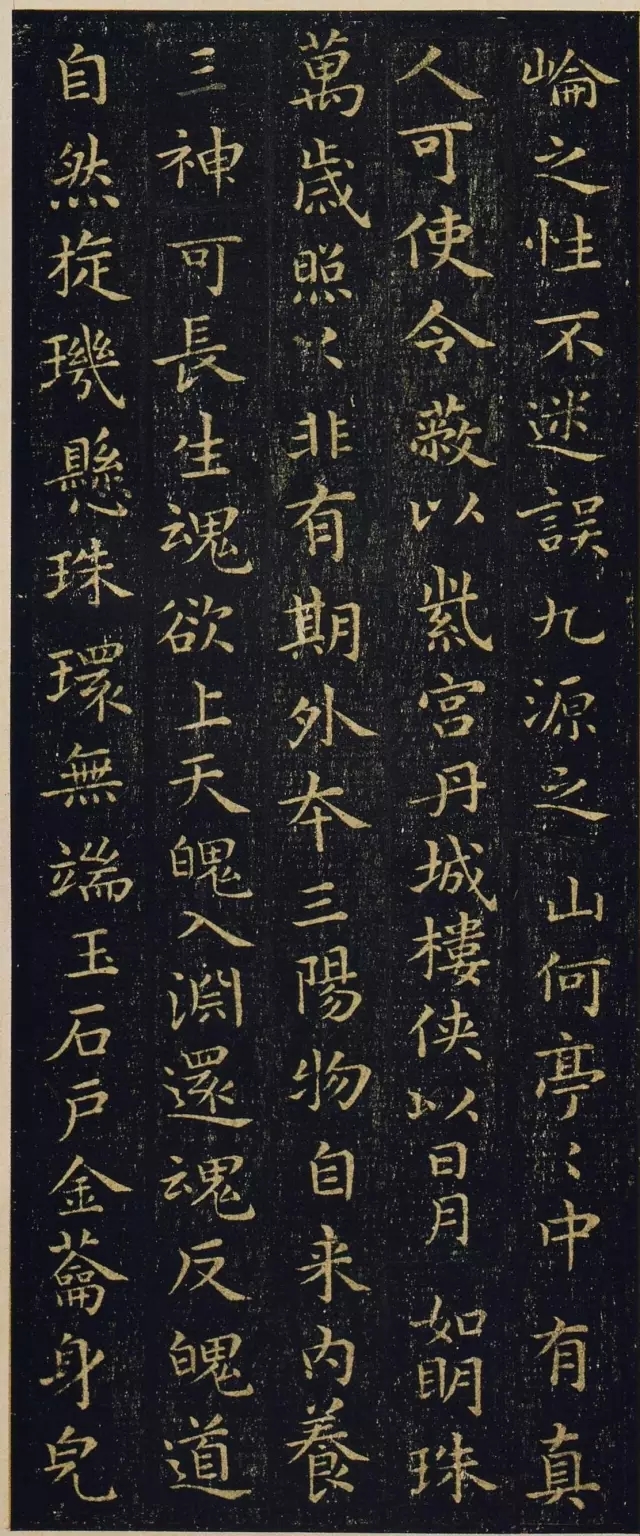 崘之性不迷誤九源之山何亭〻中有真
人可使令蔽以紫宮丹城樓侠以日月如眀珠
萬歲照〻非有期外夲三陽物自来內養
三神可長生魂欲上天魄入淵還魂反魄道
自然旋璣懸珠環無端玉石戶金蘥身皃